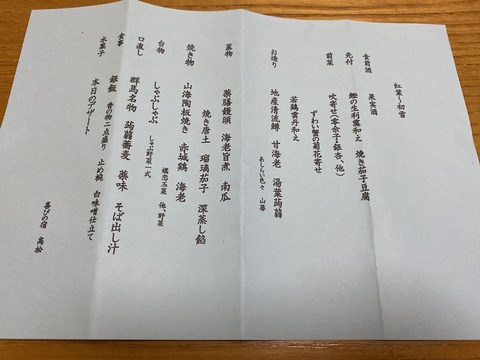 紅葉〜初雪
食前酒 果実酒
先付 鰹の生利霙和え 焼き茄子豆腐
前菜 吹寄せ(零余子銀杏、他)
ずわい蟹の菊花寄せ
若鶏雲丹和え
お造り 地産清流鱒 甘海老 湯葉蒟蒻
あしらい色々 山葵
蓋物 薬膳饅頭 海老旨煮 南瓜
焼き唐土 瑠璃茄子 深蒸し餡
焼き物 山海陶板焼き 赤城鶏 海老
嬬恋玉菜 他、野菜
台物 しゃぶしゃぶ しゃぶ野菜一式
口直し 群馬名物 蒟蒻蕎麦 薬味 そば出し汁
食事 銀飯 香の物二点盛り 止め椀 白味噌仕立て
水菓子 本日のデザート
喜びの宿 高松